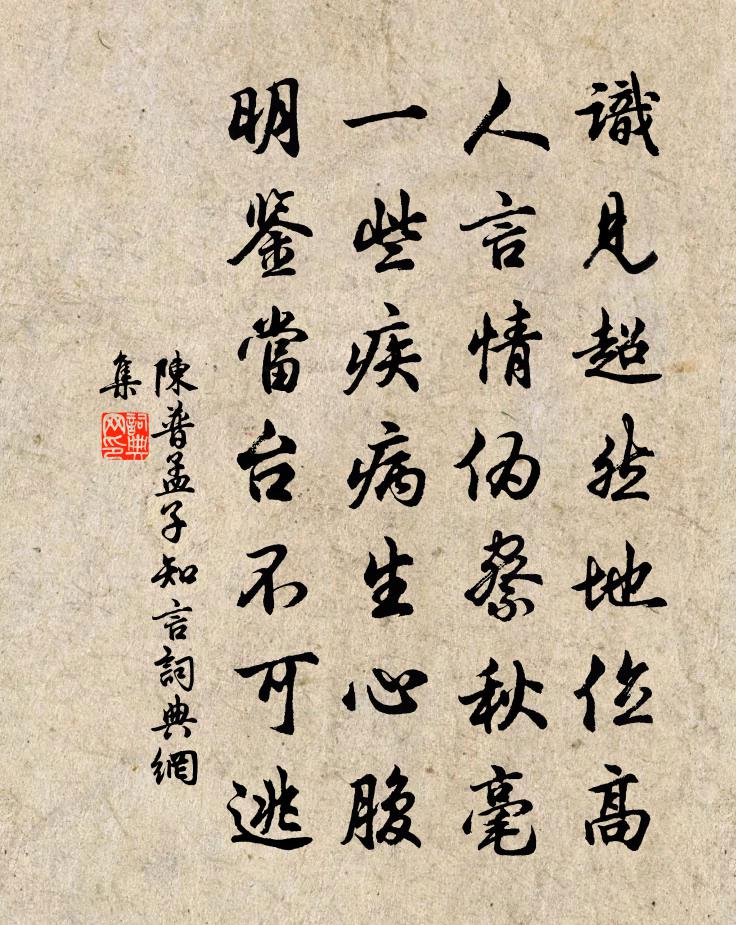 識見超然地位高
人言情偽察秋毫
一些疾病生心腹
明鉴當台不可逃
陳普孟子知言詞典網
集
詞典
网印